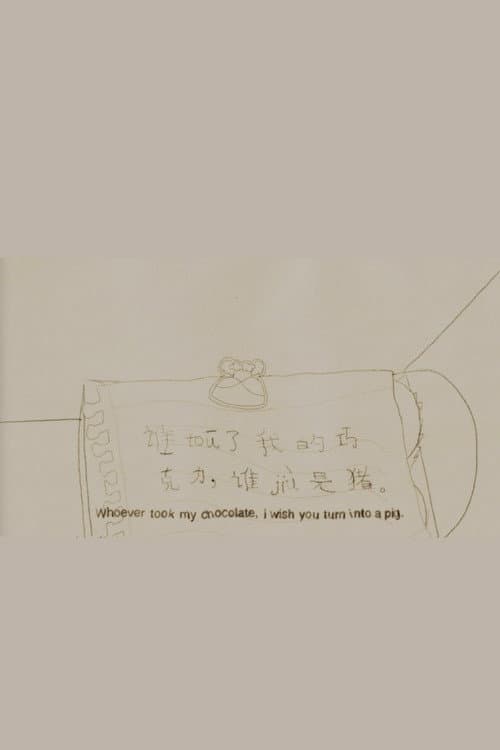 谁了我的巧
克力，谁是猪。
Whoever took my chocolate, i wish you turn into a pig.